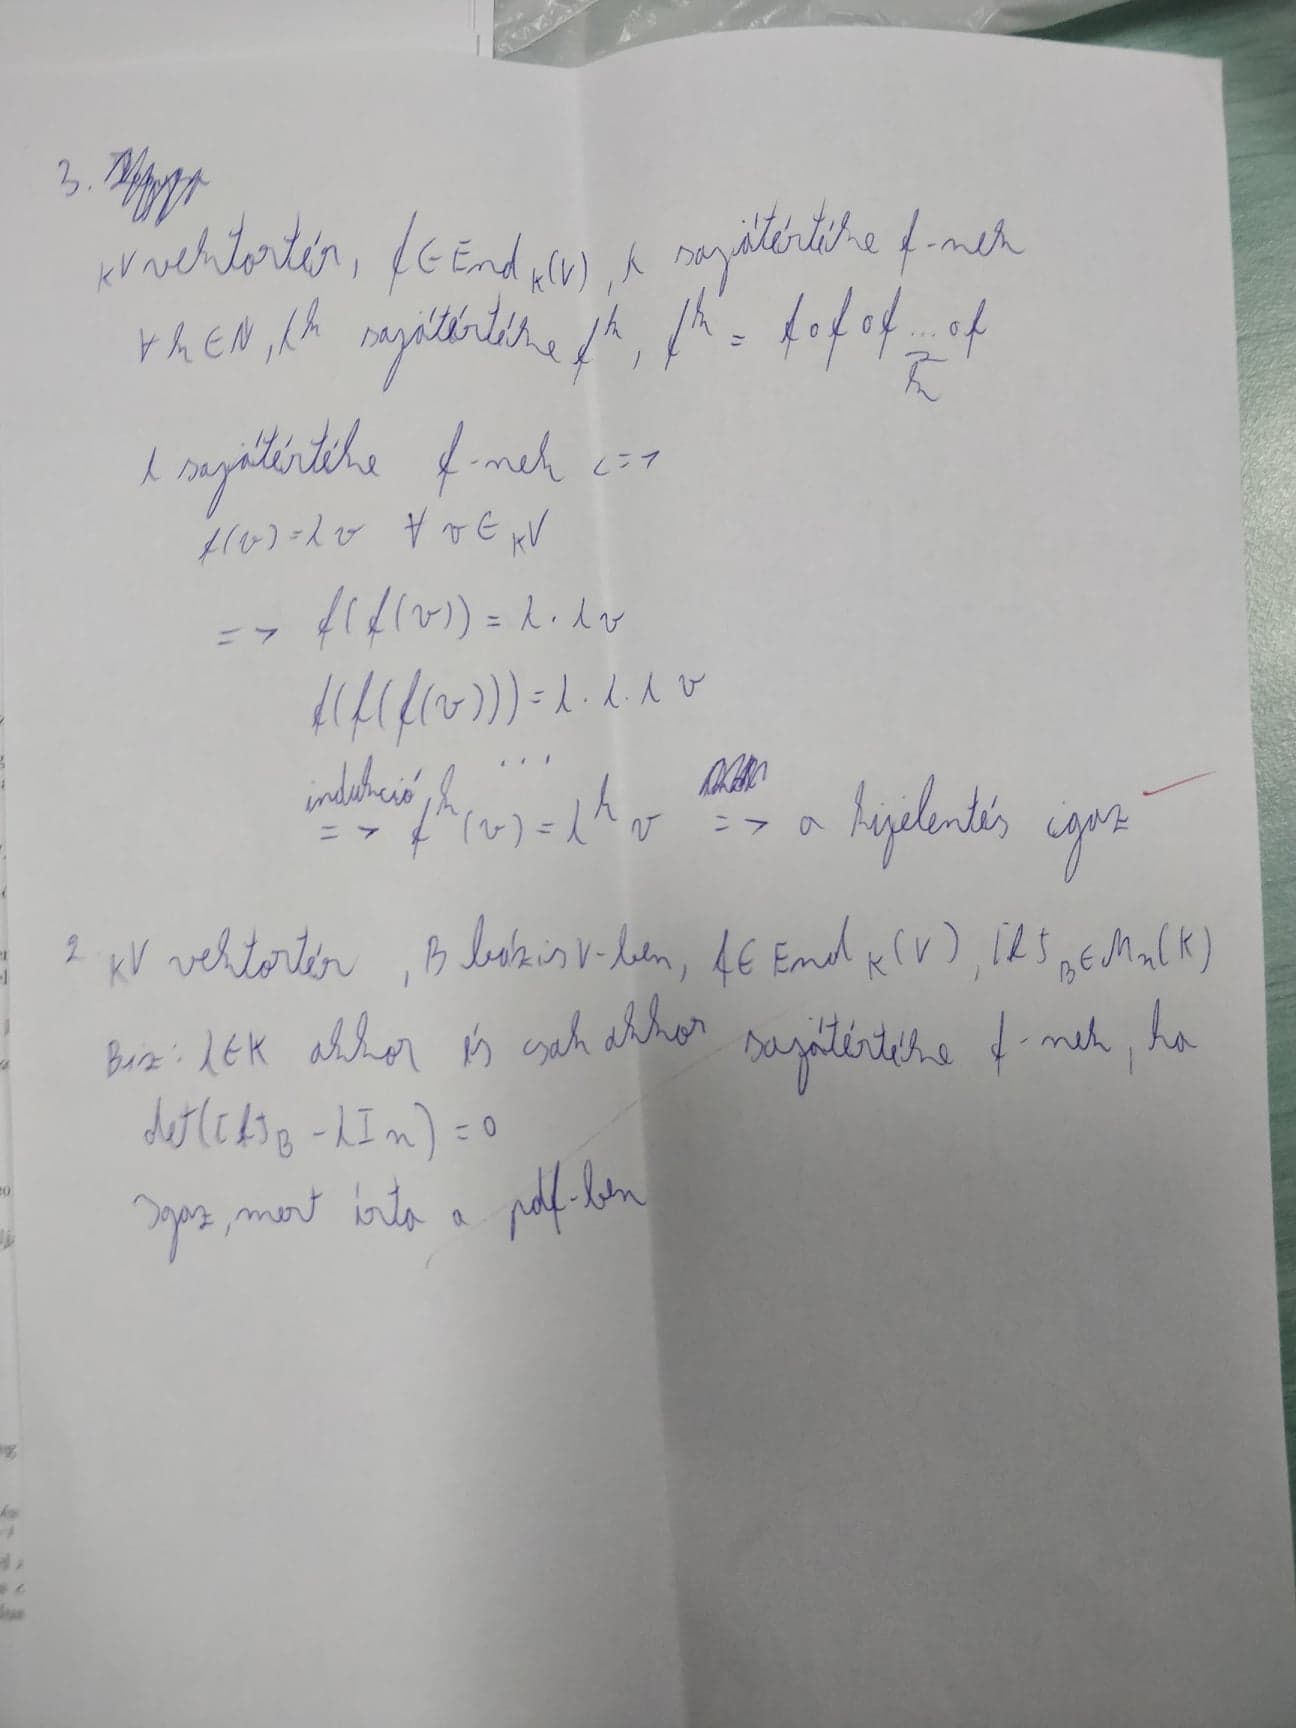 3.
KV vektortér, f∈End_K(V), λ sajátértéke f-nek
∀k∈N, λ^k sajátértéke f^k, f^k = f∘f∘f...∘f
k
λ sajátértéke f-nek <=>
f(v)=λv ∀v∈ KV
=> f(f(v))=λ·λv
f(f(f(v)))=λ·λ·λv
...
indukció
=> f^k(v)=λ^k v => a kijelentés igaz
2 KV vektortér, B bázis V-ben, f∈End_K(V), [f]_B∈M_n(K)
Biz: λ∈K akkor és csak akkor sajátértéke f-nek, ha
det([f]_B-λI_n)=0
Igaz, mert írta a pdf-ben